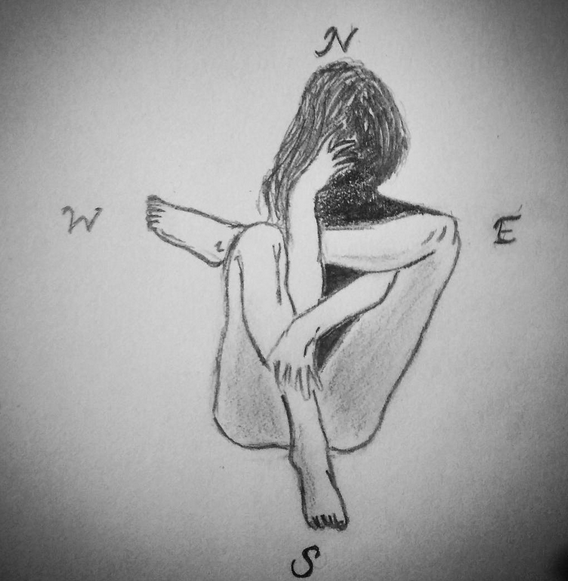 N
W E
S